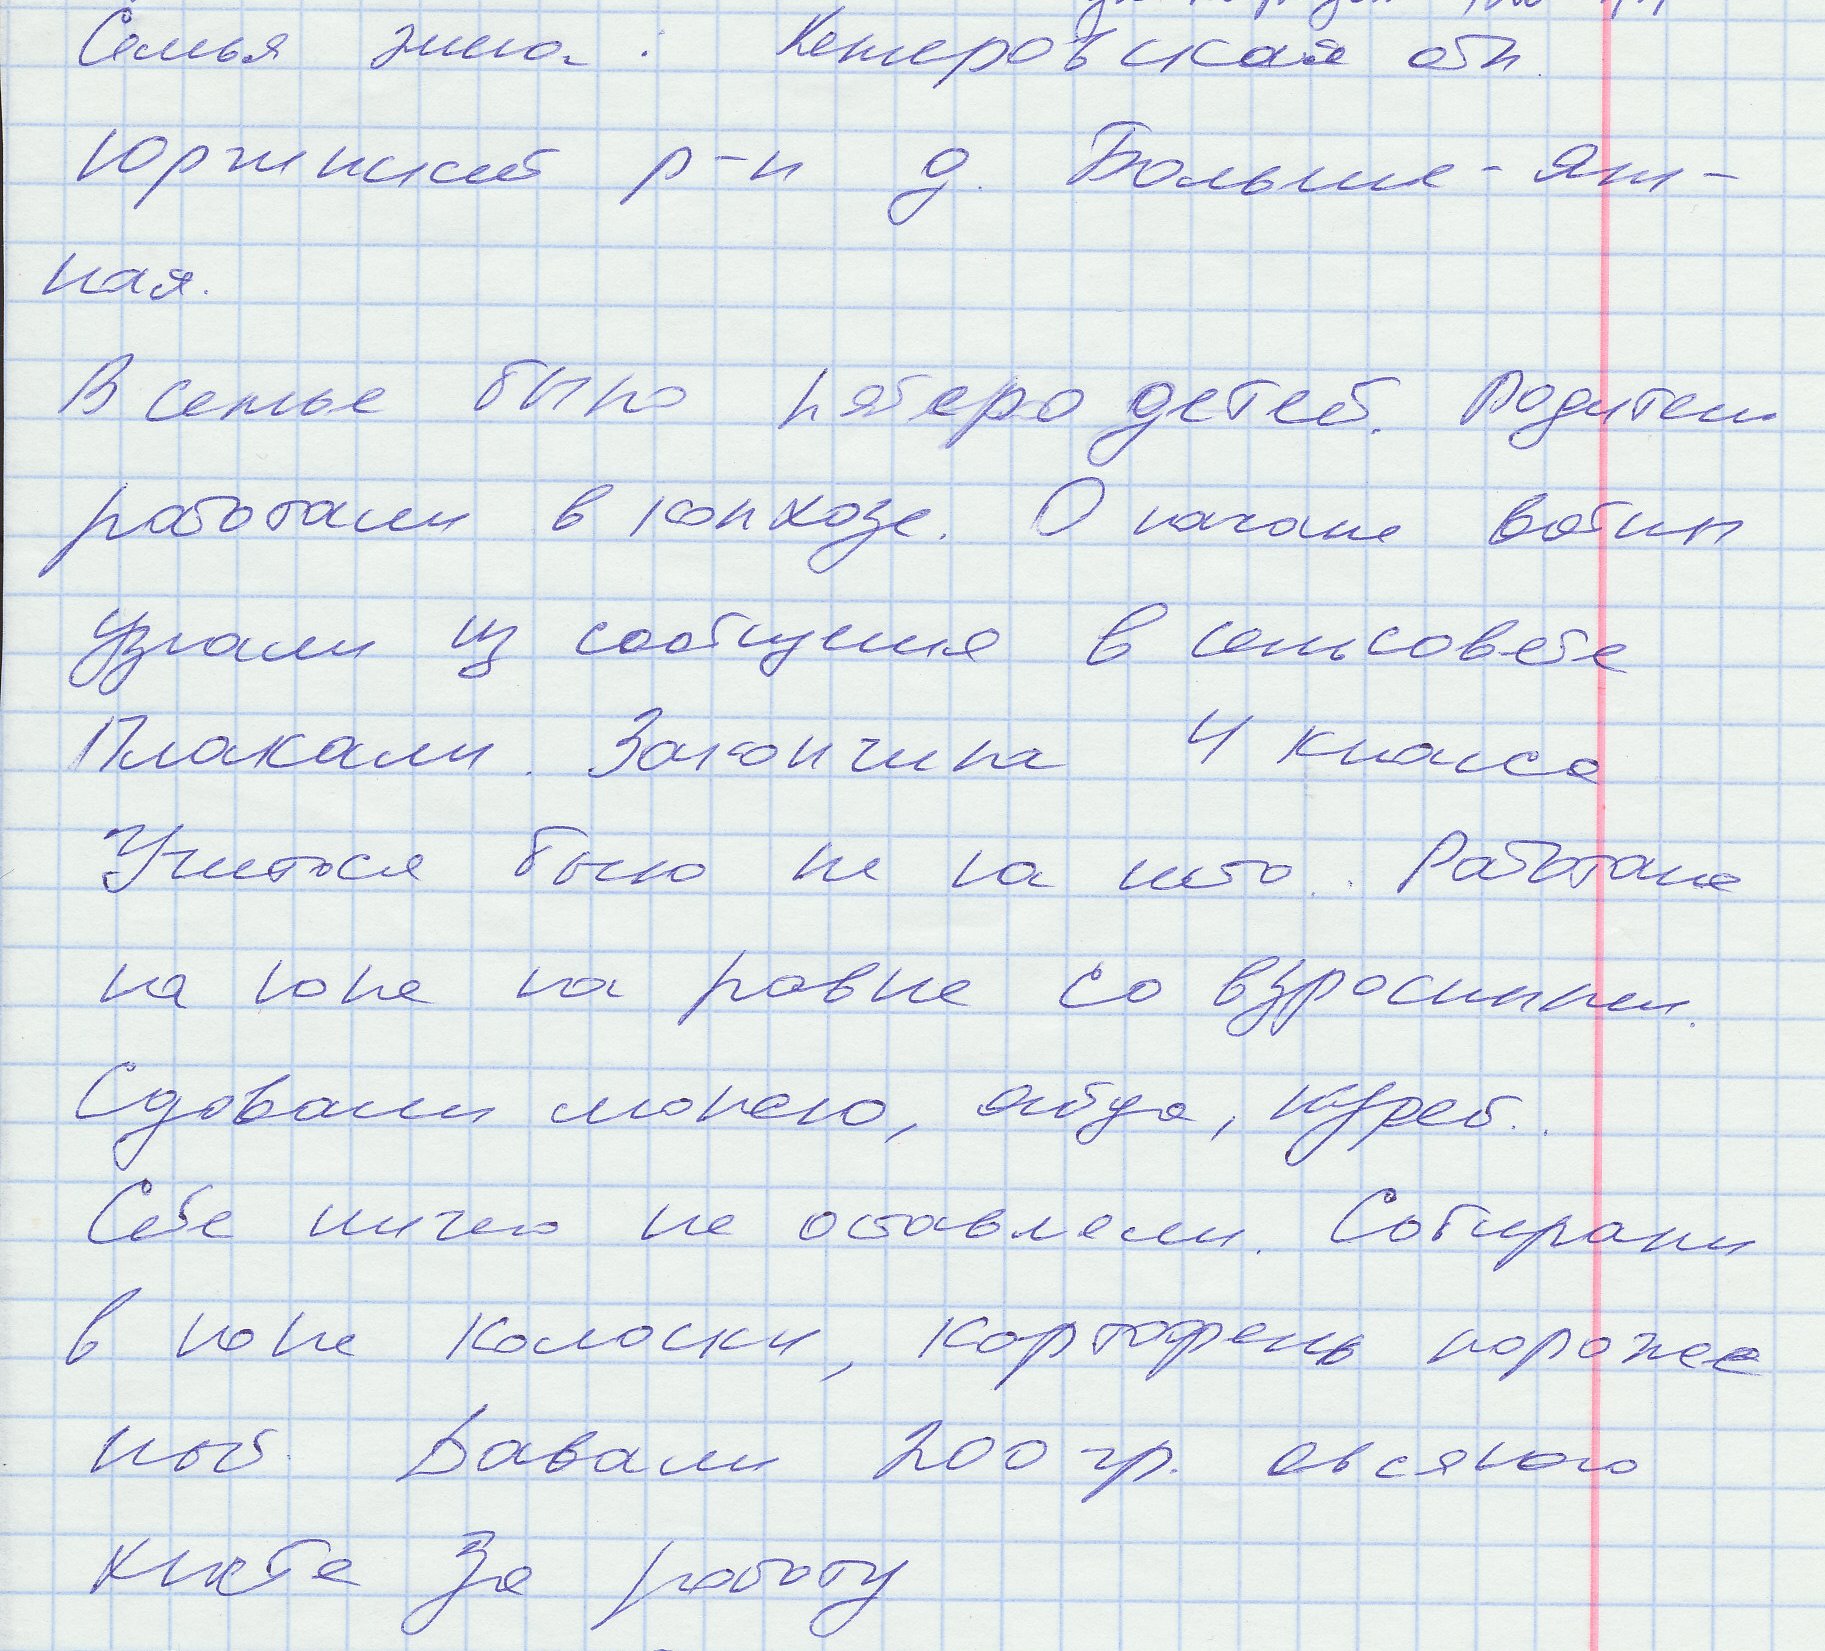 Семья жила: Кемеровская обл.
Юргинский р-н д. Больше-Ям-
ная.
В семье было пятеро детей. Родители
работали в колхозе. О начале войны
узнали из сообщения в сельсовете
Плакали. Закончила 4 класса
Учиться было не на что.. Работала
на поле на ровне со взрослыми.
Сдовали молоко, яйца, курей..
Себе ничего не оставляли. Собирали
в поле колоски, картофель мороже
ный. Давали 200 гр. овсяного
хлеба за работу